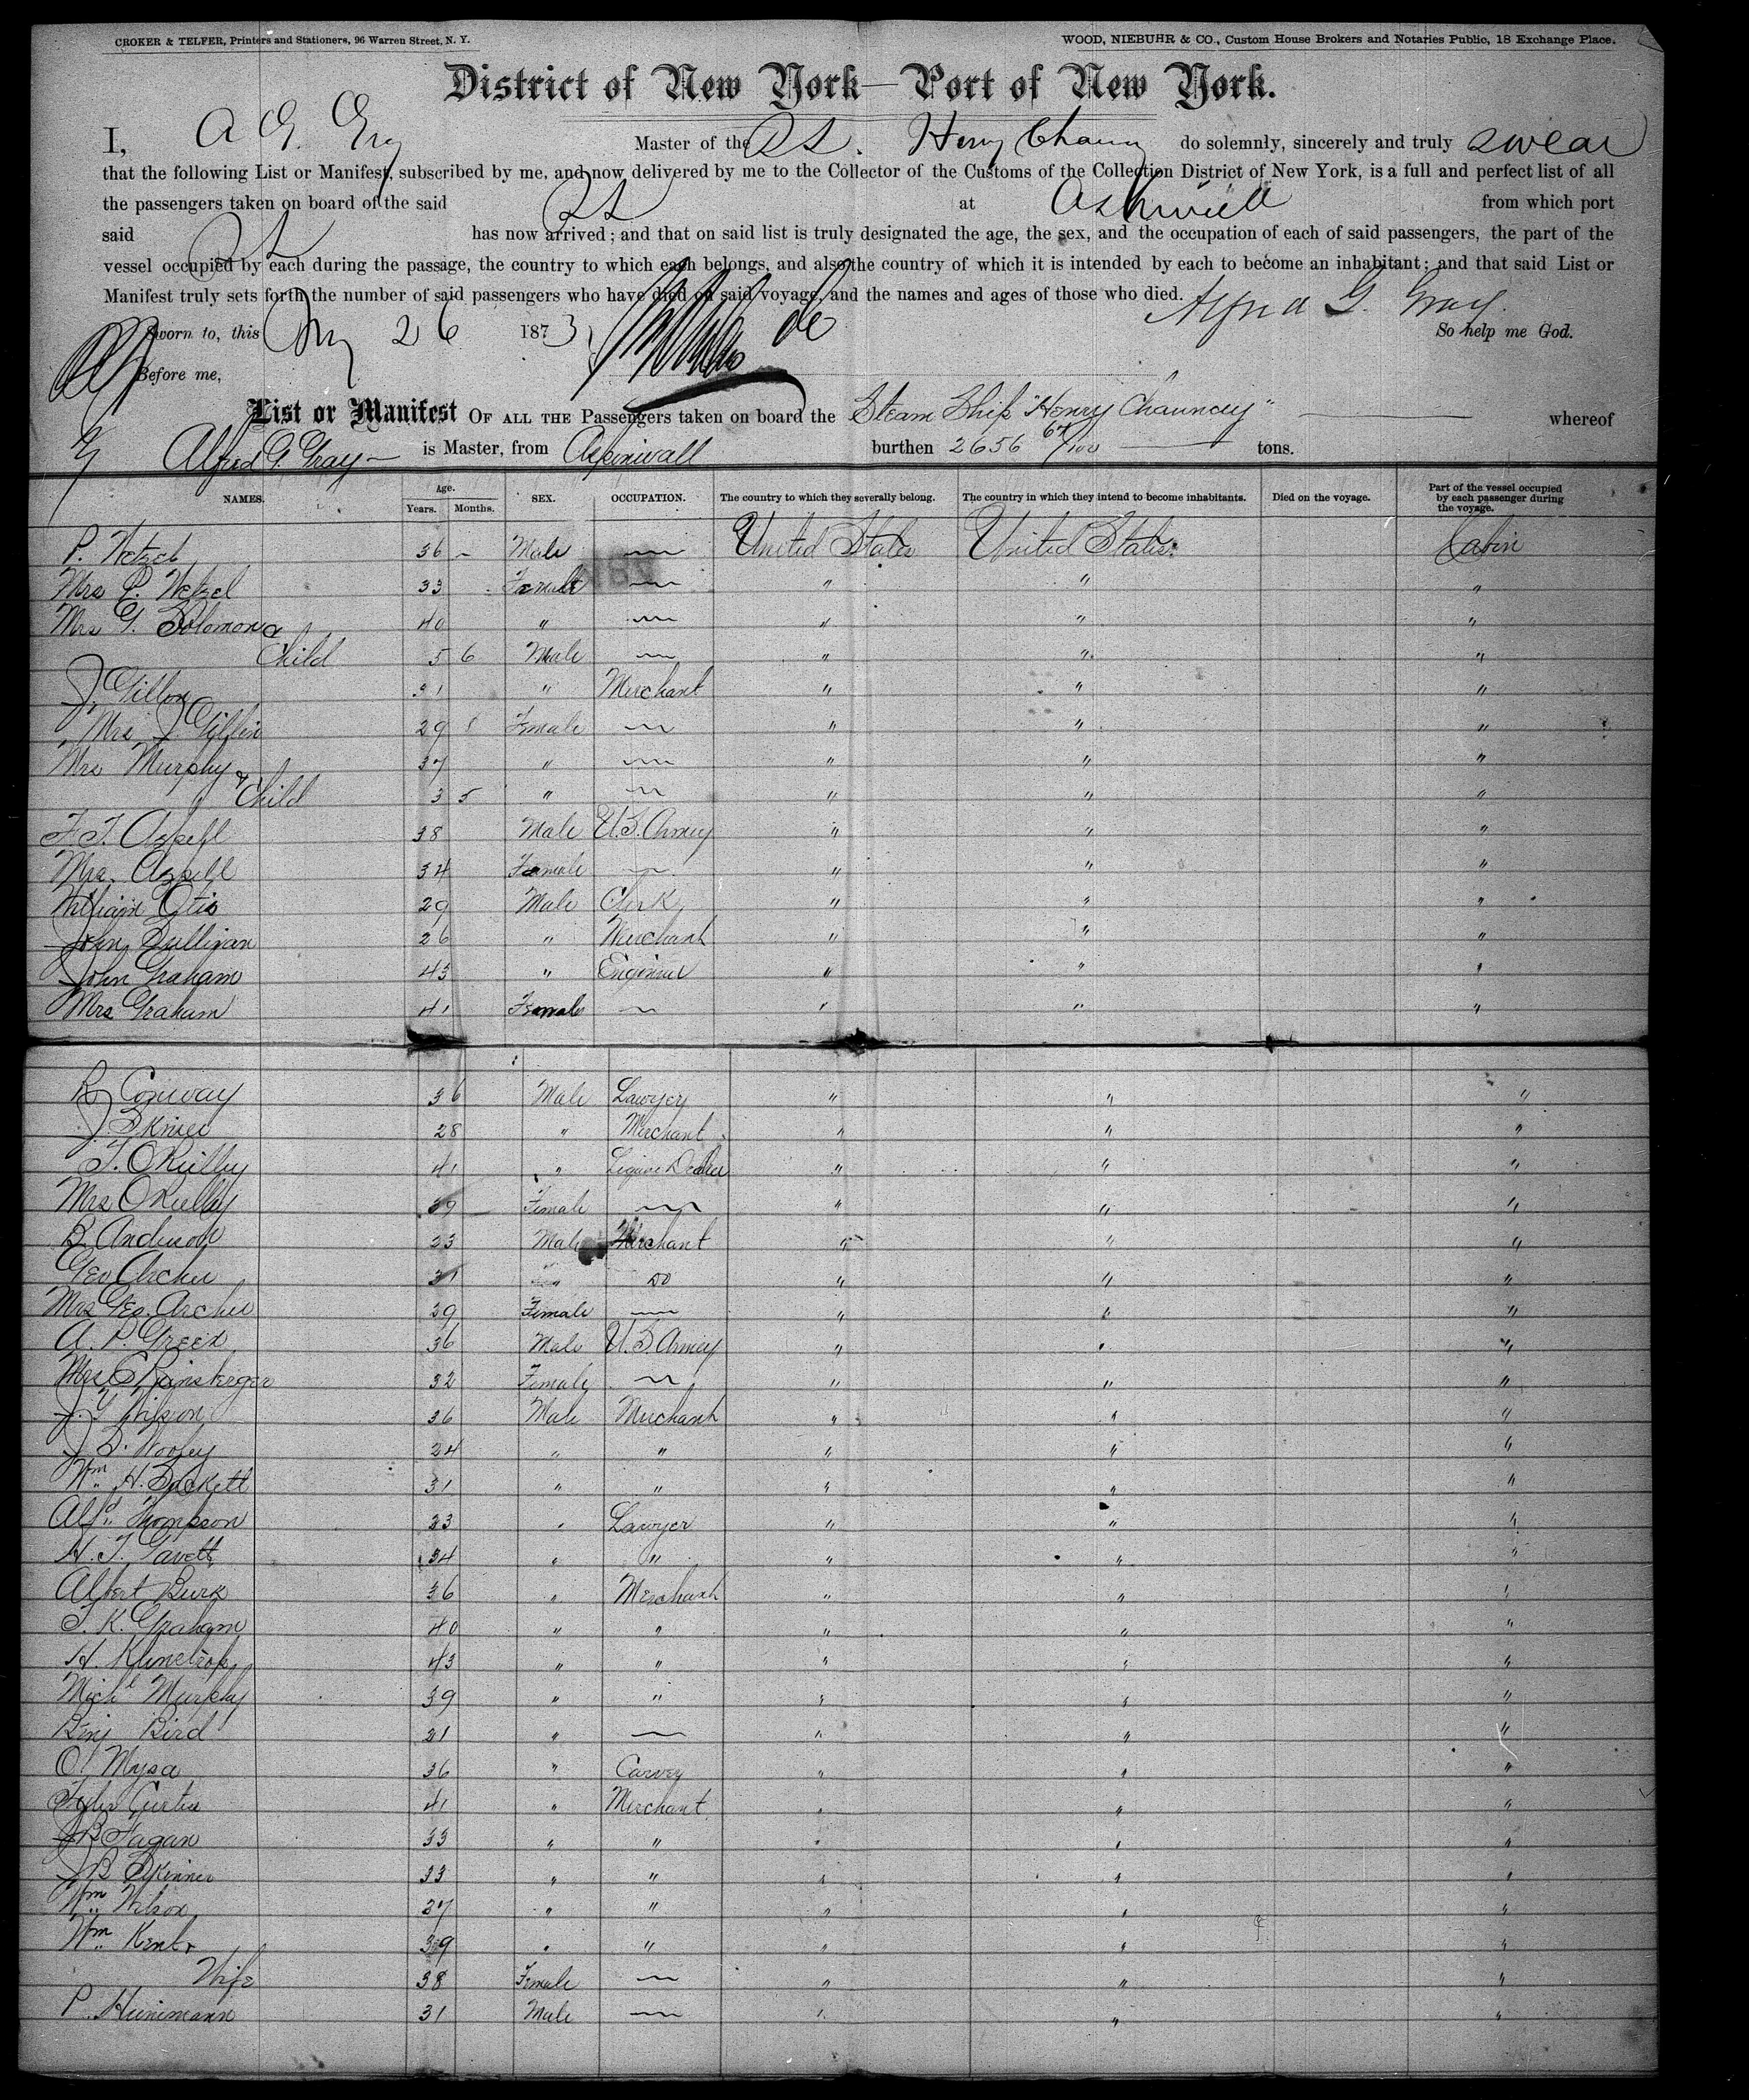 CROKER & TELFER, Printers and Stationers, 96 Warren Street, N. Y.
WOOD, NIEBUHR & CO., Custom House Brokers and Notaries Public, 18 Exchange Place.
District of New York—Port of New York.
I, A G. Gray Master of the SS. Henry Chauncy do solemnly, sincerely and truly swear
that the following List or Manifest, subscribed by me, and now delivered by me to the Collector of the Customs of the Collection District of New York, is a full and perfect list of all
the passengers taken on board of the said SS at Aspinwall from which port
said SS has now arrived; and that on said list is truly designated the age, the sex, and the occupation of each of said passengers, the part of the
vessel occupied by each during the passage, the country to which each belongs, and also the country of which it is intended by each to become an inhabitant; and that said List or
Manifest truly sets forth the number of said passengers who have died on said voyage, and the names and ages of those who died.
Alfred G. Gray.
Sworn to, this 26 1873 So help me God.
Before me,
List or Manifest OF ALL THE Passengers taken on board the Steam Ship "Henry Chauncey" whereof
Alfred G. Gray — is Master, from Aspinwall burthen 2656 67/100 tons.
NAMES. Age. Years. Months. SEX. OCCUPATION. The country to which they severally belong. The country in which they intend to become inhabitants. Died on the voyage. Part of the vessel occupied by each passenger during the voyage.
P. Wetzel 36 – Male — United States United States. Cabin
Mrs P. Wetzel 33 Female — " " "
Mrs G. Solomon & 40 " — " " "
Child 5 6 Male — " " "
J. Gillon 31 " Merchant " " "
Mrs J Gillin 29 Female — " " "
Mrs Murphy & 37 " — " " "
Child 3 5 " — " " "
F. T. Aspell 38 Male U.S. Army " " "
Mrs. Aspell 34 Female — " " "
William Otis 29 Male Clerk " " "
John Sullivan 26 " Merchant " " "
John Graham 43 " Engineer " " "
Mrs Graham 41 Female — " " "
R Conway 36 Male Lawyer " " "
J. 28 " Merchant " " "
T. OReilly 41 " Liquor Dealer " " "
Mrs OReilly 39 Female — " " "
B. Anderson 23 Male Merchant " " "
Geo Archer 31 " Do " " "
Mrs Geo. Archer 29 Female — " " "
A. P. Green 36 Male U.S. Army " " "
Mrs 32 Female — " " "
J. G Wilson 36 Male Merchant " " "
J S. Wooley 24 " " " " "
Wm. H. Sackett 31 " " " " "
Alfd. Thompson 23 " Lawyer " " "
H. T. Gavett 34 " " " " "
Albert Burk 36 " Merchant " " "
T. K. Graham 40 " " " " "
H. Klinetrop 43 " " " " "
Michl Murphy 39 " " " " "
Binj Bird 21 " — " " "
O! Mysa 36 " " " "
Tyler Curtis 41 " Merchant " " "
J B Fagan 33 " " " " "
J B Skinner 33 " " " " "
Wm. Wilson 27 " " " " "
Wm. Kent & 39 " " " " "
Wife 38 Female — " " "
P. Heinimann 31 Male — " " "